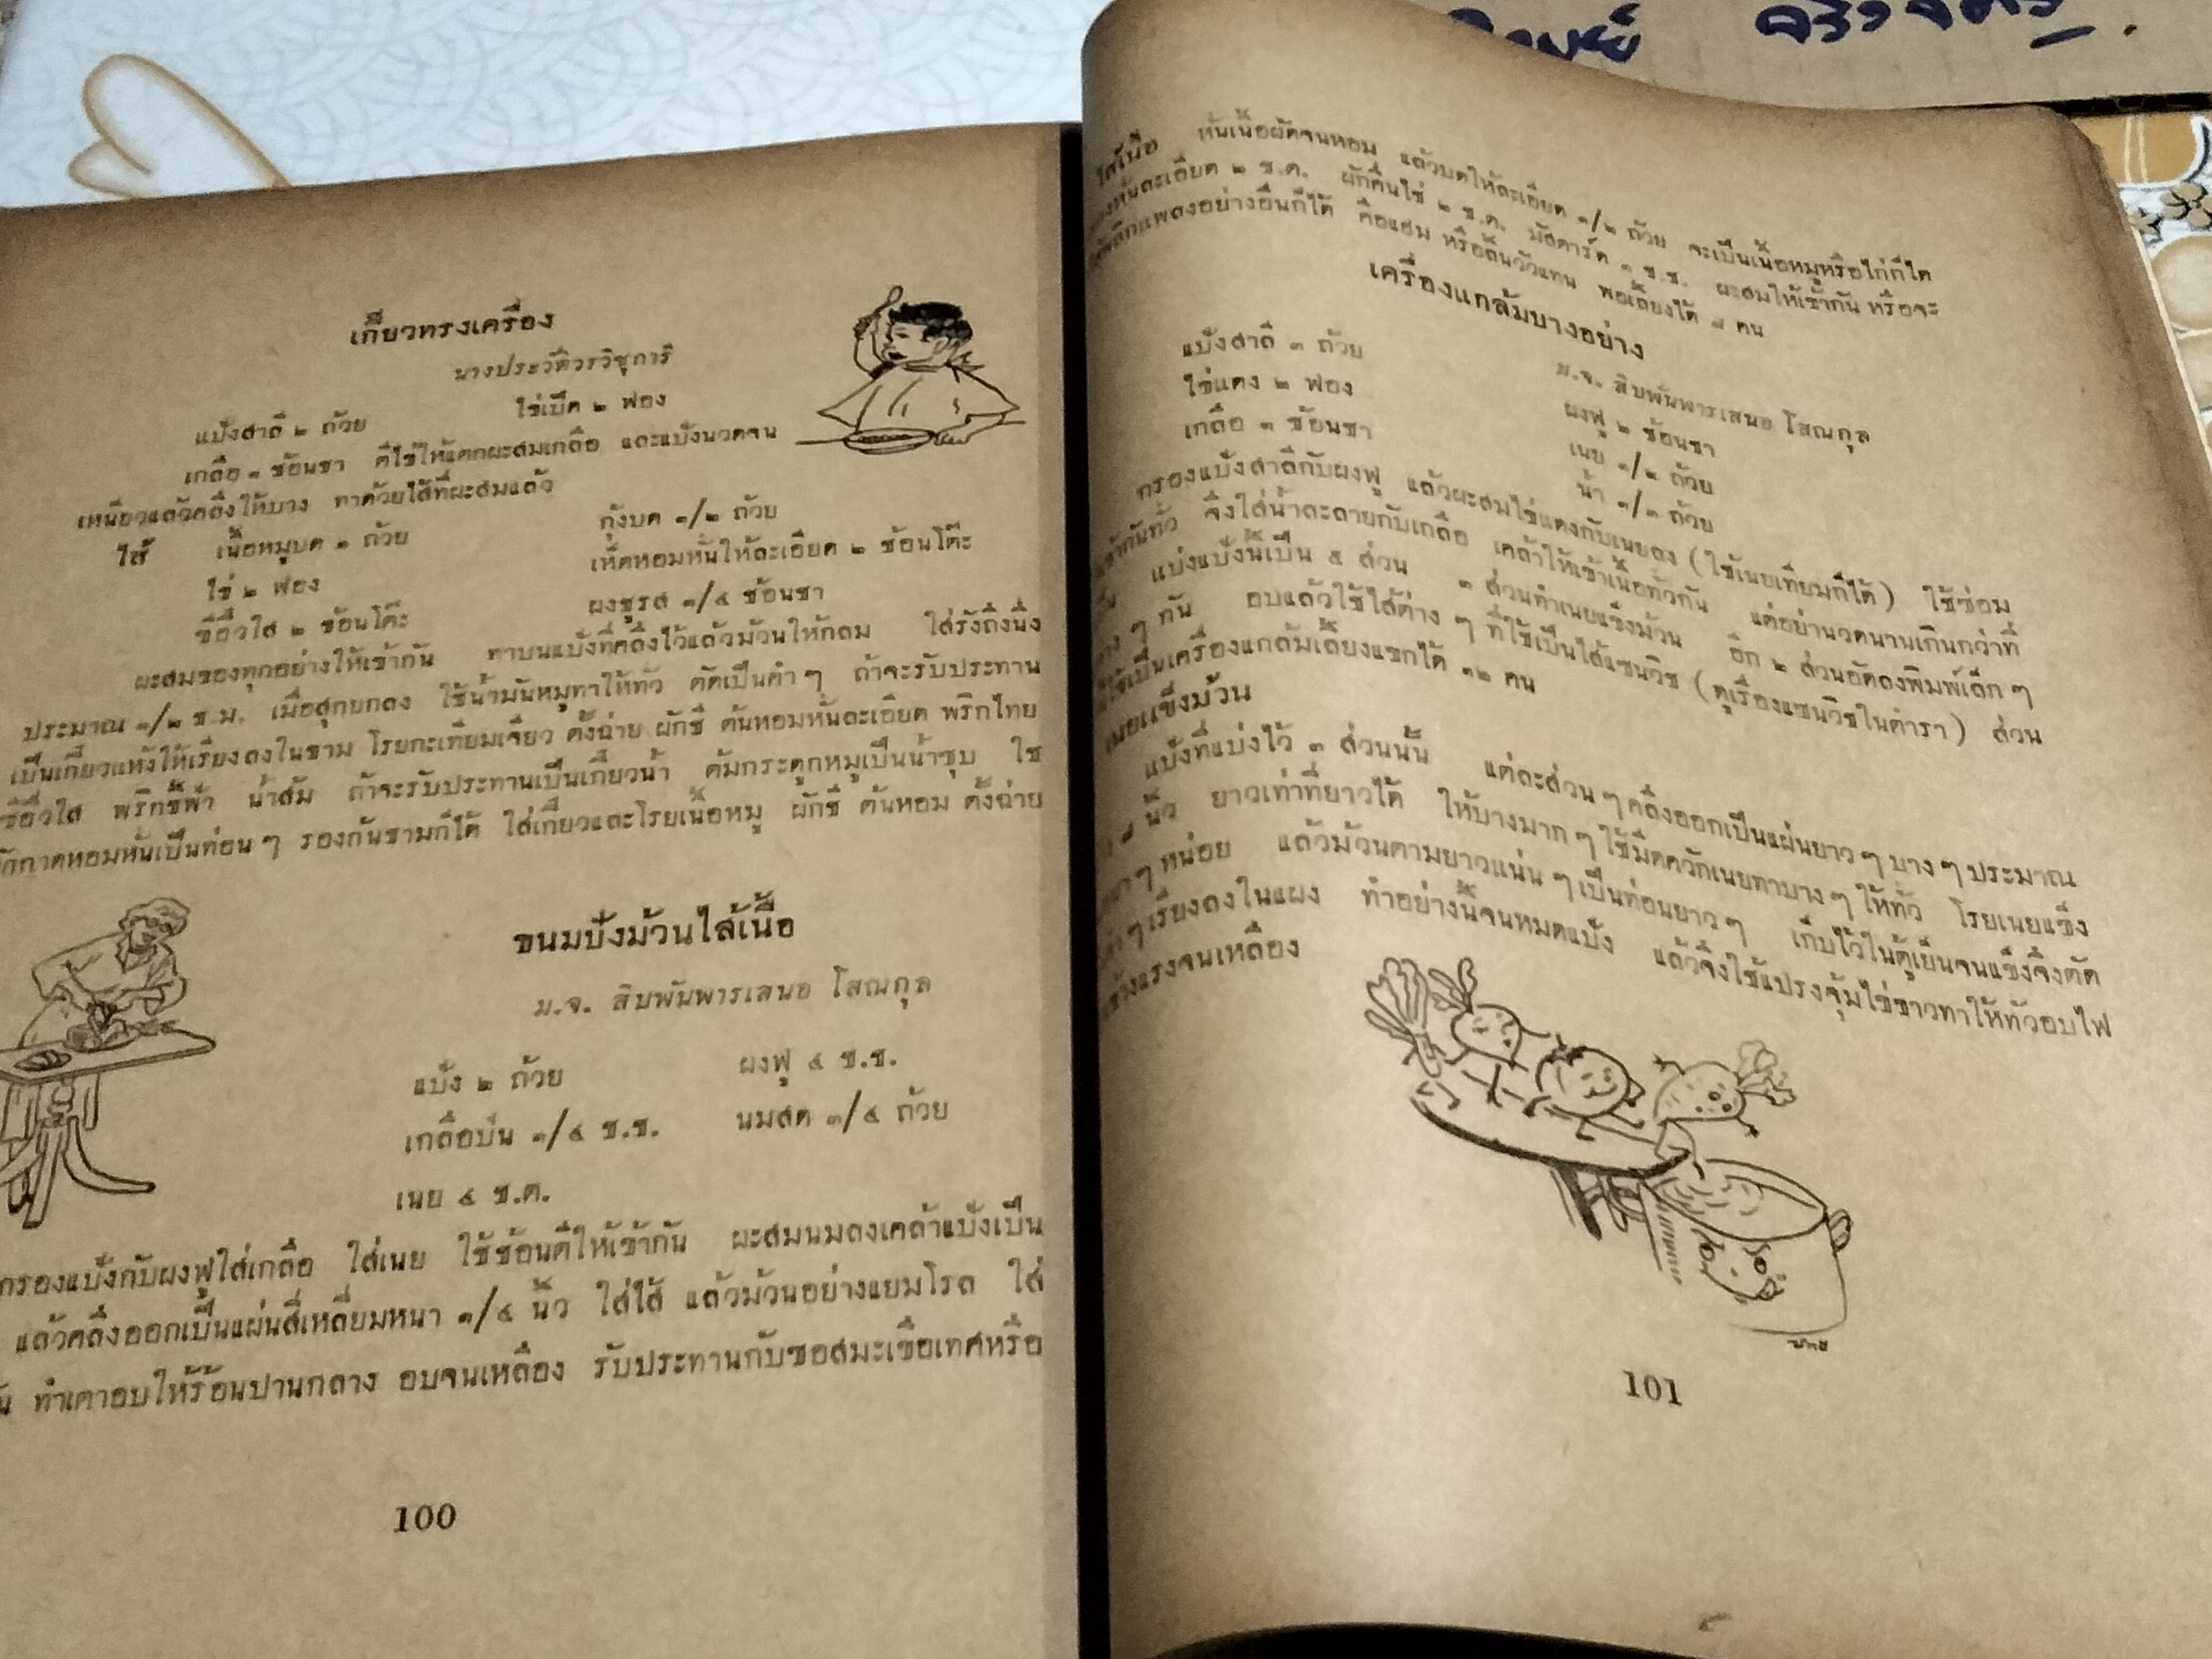 เกี๊ยวทรงเครื่อง
นางประวัติวรวิชุการี
แป้งสาลี ๒ ถ้วย ไข่เป็ด ๒ ฟอง
เกลือ ๑ ช้อนชา ตีไข่ให้แตกผสมเกลือ และแป้งนวดจน
เหนียวแล้วคลึงให้บาง ทาด้วยไส้ที่ผะสมแล้ว
ไส้ เนื้อหมูบด ๑ ถ้วย กุ้งบด ๑/๒ ถ้วย
ไข่ ๒ ฟอง เห็ดหอมหั่นให้ละเอียด ๒ ช้อนโต๊ะ
ซีอิ๊วใส ๒ ช้อนโต๊ะ ผงชูรส ๑/๔ ช้อนชา
ผะสมของทุกอย่างให้เข้ากัน ทาบนแป้งที่คลึงไว้แล้วม้วนให้กลม ใส่รังถึงนึ่ง
ประมาณ ๑/๒ ช.ม. เมื่อสุกยกลง ใช้น้ำมันหมูทาให้ทั่ว ตัดเป็นคำๆ ถ้าจะรับประทาน
เป็นเกี๊ยวแห้งให้เรียงลงในชาม โรยกะเทียมเจียว ตั้งฉ่าย ผักชี ต้นหอมหั่นละเอียด พริกไทย
ซีอิ๊วใส พริกชี้ฟ้า น้ำส้ม ถ้าจะรับประทานเป็นเกี๊ยวน้ำ ต้มกระดูกหมูเป็นน้ำซุบ ใช้
ผักกาดหอมหั่นเป็นท่อนๆ รองก้นชามก็ได้ ใส่เกี๊ยวและโรยเนื้อหมู ผักชี ต้นหอม ตั้งฉ่าย
ขนมปังม้วนไส้เนื้อ
ม.จ. สิบพันพารเสนอ โสณกุล
แป้ง ๒ ถ้วย ผงฟู ๔ ช.ช.
เกลือป่น ๑/๔ ช.ช. นมสด ๓/๔ ถ้วย
เนย ๔ ช.ต.
กรองแป้งกับผงฟูใส่เกลือ ใส่เนย ใช้ช้อนตีให้เข้ากัน ผะสมนมลงเคล้าแป้งเป็น
แล้วคลึงออกเป็นแผ่นสี่เหลี่ยมหนา ๑/๔ นิ้ว ใส่ไส้ แล้วม้วนอย่างแยมโรล ใส่
ทำเตาอบให้ร้อนปานกลาง อบจนเหลือง รับประทานกับซอสมะเขือเทศหรือ
100
ไส้เนื้อ หั่นเนื้อผัดจนหอม แล้วบดให้ละเอียด ๑/๒ ถ้วย จะเป็นเนื้อหมูหรือไก่ก็ได้
หั่นละเอียด ๒ ช.ต. ผักคื่นไช่ ๒ ช.ต. มัสตาร์ด ๑ ช.ช. ผะสมให้เข้ากัน หรือจะ
พลิกแพลงอย่างอื่นก็ได้ คือแฮม หรือลิ้นวัวแทน พอเลี้ยงได้ ๘ คน
เครื่องแกล้มบางอย่าง
ม.จ. สิบพันพารเสนอ โสณกุล
แป้งสาลี ๓ ถ้วย ผงฟู ๒ ช้อนชา
ไข่แดง ๒ ฟอง เนย ๑/๒ ถ้วย
เกลือ ๑ ช้อนชา น้ำ ๑/๓ ถ้วย
กรองแป้งสาลีกับผงฟู แล้วผะสมไข่แดงกับเนยลง (ใช้เนยเทียมก็ได้) ใช้ซ่อม
เข้ากันทั่ว จึงใส่น้ำละลายกับเกลือ เคล้าให้เข้าเนื้อทั่วกัน แต่อย่านวดนานเกินกว่าที่
แบ่งแป้งนี้เป็น ๕ ส่วน ๓ ส่วนทำเนยแข็งม้วน อีก ๒ ส่วนอัดลงพิมพ์เล็กๆ
ต่าง ๆ กัน อบแล้วใช้ใส่ไส้ต่าง ๆ ที่ใช้เป็นไส้แซนวิช (ดูเรื่องแซนวิชในตำรา) ส่วน
ใช้เป็นเครื่องแกล้มเลี้ยงแขกได้ ๑๒ คน
เนยแข็งม้วน
แป้งที่แบ่งไว้ ๓ ส่วนนั้น แต่ละส่วน ๆ คลึงออกเป็นแผ่นยาว ๆ บาง ๆ ประมาณ
๘ นิ้ว ยาวเท่าที่ยาวได้ ให้บางมาก ๆ ใช้มีดควักเนยทาบาง ๆ ให้ทั่ว โรยเนยแข็ง
ๆ หน่อย แล้วม้วนตามยาวแน่น ๆ เป็นท่อนยาว ๆ เก็บไว้ในตู้เย็นจนแข็งจึงตัด
ๆ เรียงลงในแผง ทำอย่างนี้จนหมดแป้ง แล้วจึงใช้แปรงจุ้มไข่ขาวทาให้ทั่วอบไฟ
ข้างแรงจนเหลือง
101